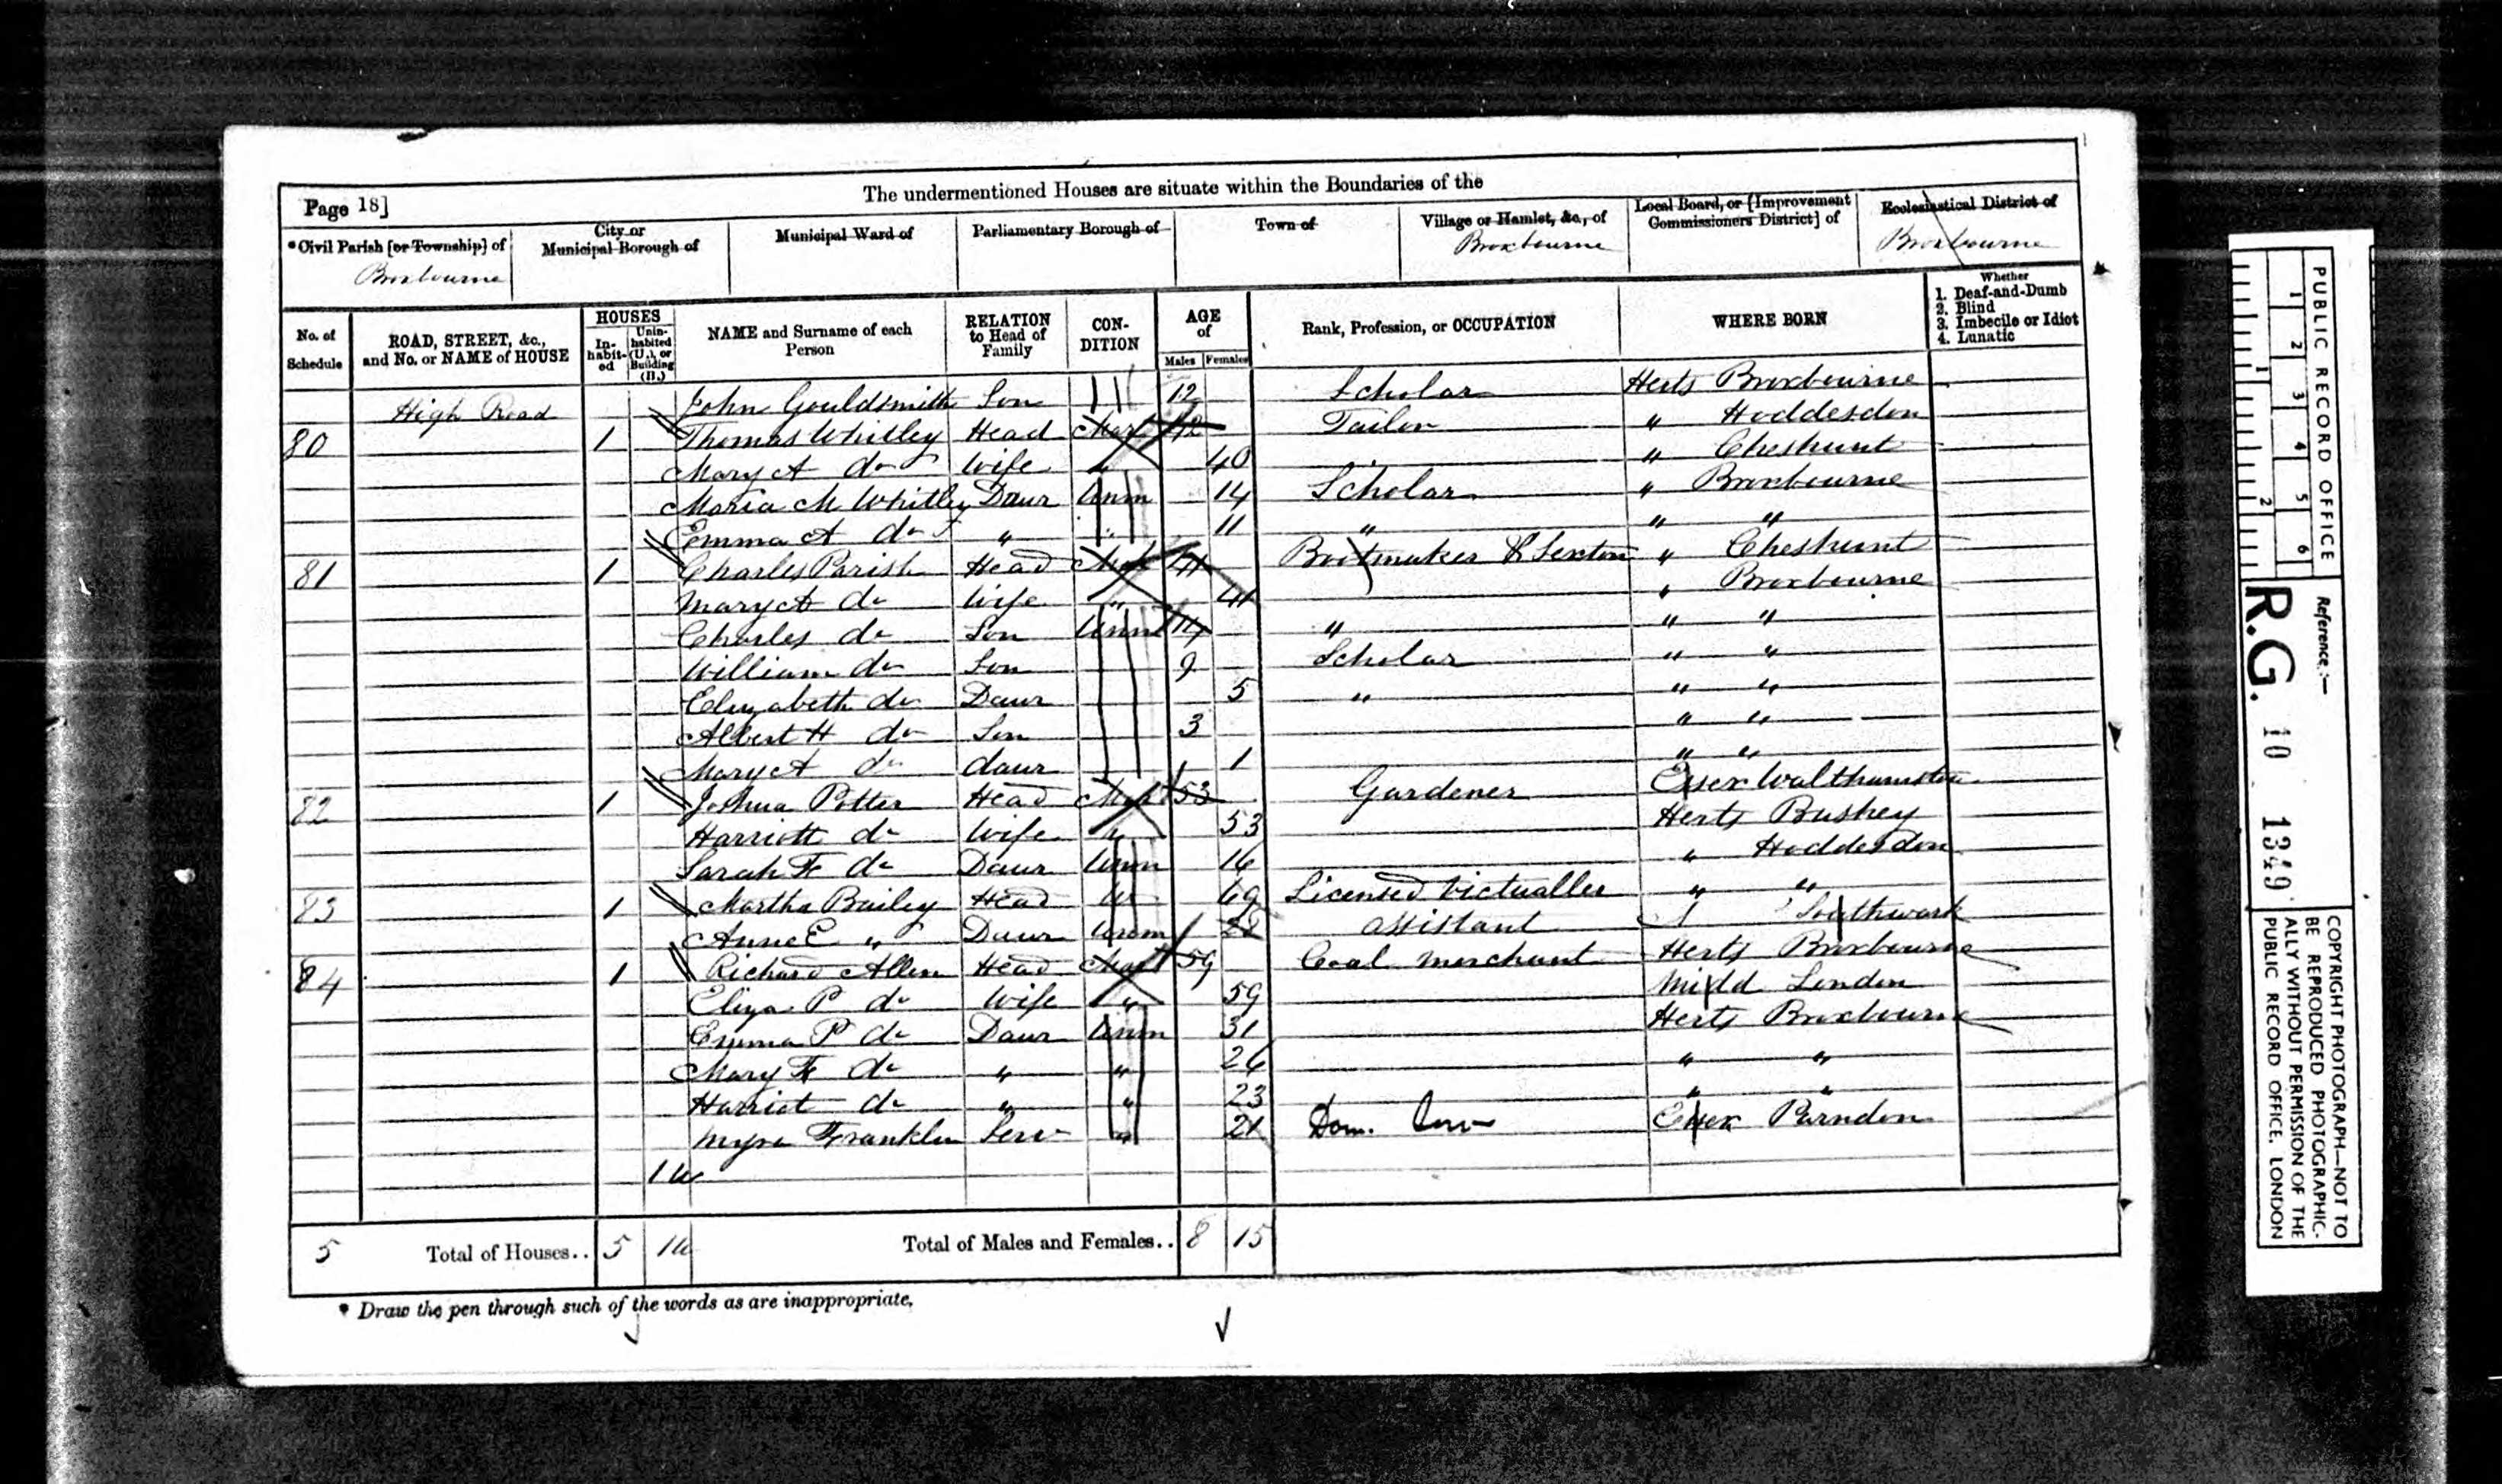 The undermentioned Houses are situate within the Boundaries of the
Page 18]
*Civil Parish [or Township] of
Broxbourne
City or
Municipal Borough of
Municipal Ward of
Parliamentary Borough of
Town of
Village or Hamlet, &c., of
Broxbourne
Local Board, or [Improvement
Commissioners District] of
Ecclesiastical District of
Broxbourne
No. of
Schedule
ROAD, STREET, &c.,
and No. or NAME of HOUSE
HOUSES
In-
habit-
ed
Unin-
habited
(U.), or
Building
(B.)
NAME and Surname of each
Person
RELATION
to Head of
Family
CON-
DITION
AGE
of
Males Females
Rank, Profession, or OCCUPATION
WHERE BORN
Whether
1. Deaf-and-Dumb
2. Blind
3. Imbecile or Idiot
4. Lunatic
High Road John Gouldsmith Son 12 Scholar Herts Broxbourne
80 1 Thomas Whitley Head Mar 42 Tailor " Hoddesdon
Mary A do Wife " 40 " Cheshunt
Maria M Whitley Daur Unm 14 Scholar " Broxbourne
Emma A do " " 11 " " "
81 1 Charles Parish Head Mar 41 Bootmaker & Sexton " Cheshunt
Mary A do Wife " 41 " Broxbourne
Charles do Son Unm 14 " " "
William do Son 9 Scholar " "
Elizabeth do Daur 5 " " "
Albert H do Son 3 " "
Mary A do daur 1 " "
82 1 Joshua Potter Head Mar 53 Gardener Essex Walthamstow
Harriott do Wife " 53 Herts Bushey
Sarah F do Daur Unm 16 " Hoddesdon
83 1 Martha Bailey Head W 69 Licensed Victualler " "
Anne E " Daur Unm 28 assistant Southwark
84 1 Richard Allen Head Mar 59 Coal Merchant Herts Broxbourne
Eliza P do Wife " 59 Midd London
Emma P do Daur Unm 31 Herts Broxbourne
Mary F do " " 26 " "
Harriot do " " 23 " "
Myra Franklin Serv " 21 Dom. Serv Essex Parndon
5 Total of Houses.. 5 Total of Males and Females.. 8 15
* Draw the pen through such of the words as are inappropriate.
PUBLIC RECORD OFFICE
1 2 3 4 5 6
1 2
Reference:-
R.G. 10 1349
COPYRIGHT PHOTOGRAPH—NOT TO
BE REPRODUCED PHOTOGRAPHIC-
ALLY WITHOUT PERMISSION OF THE
PUBLIC RECORD OFFICE, LONDON